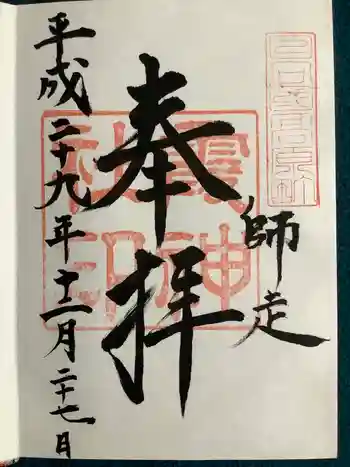 師走
奉拝
神
社印
平成二十九年十二月二十七日